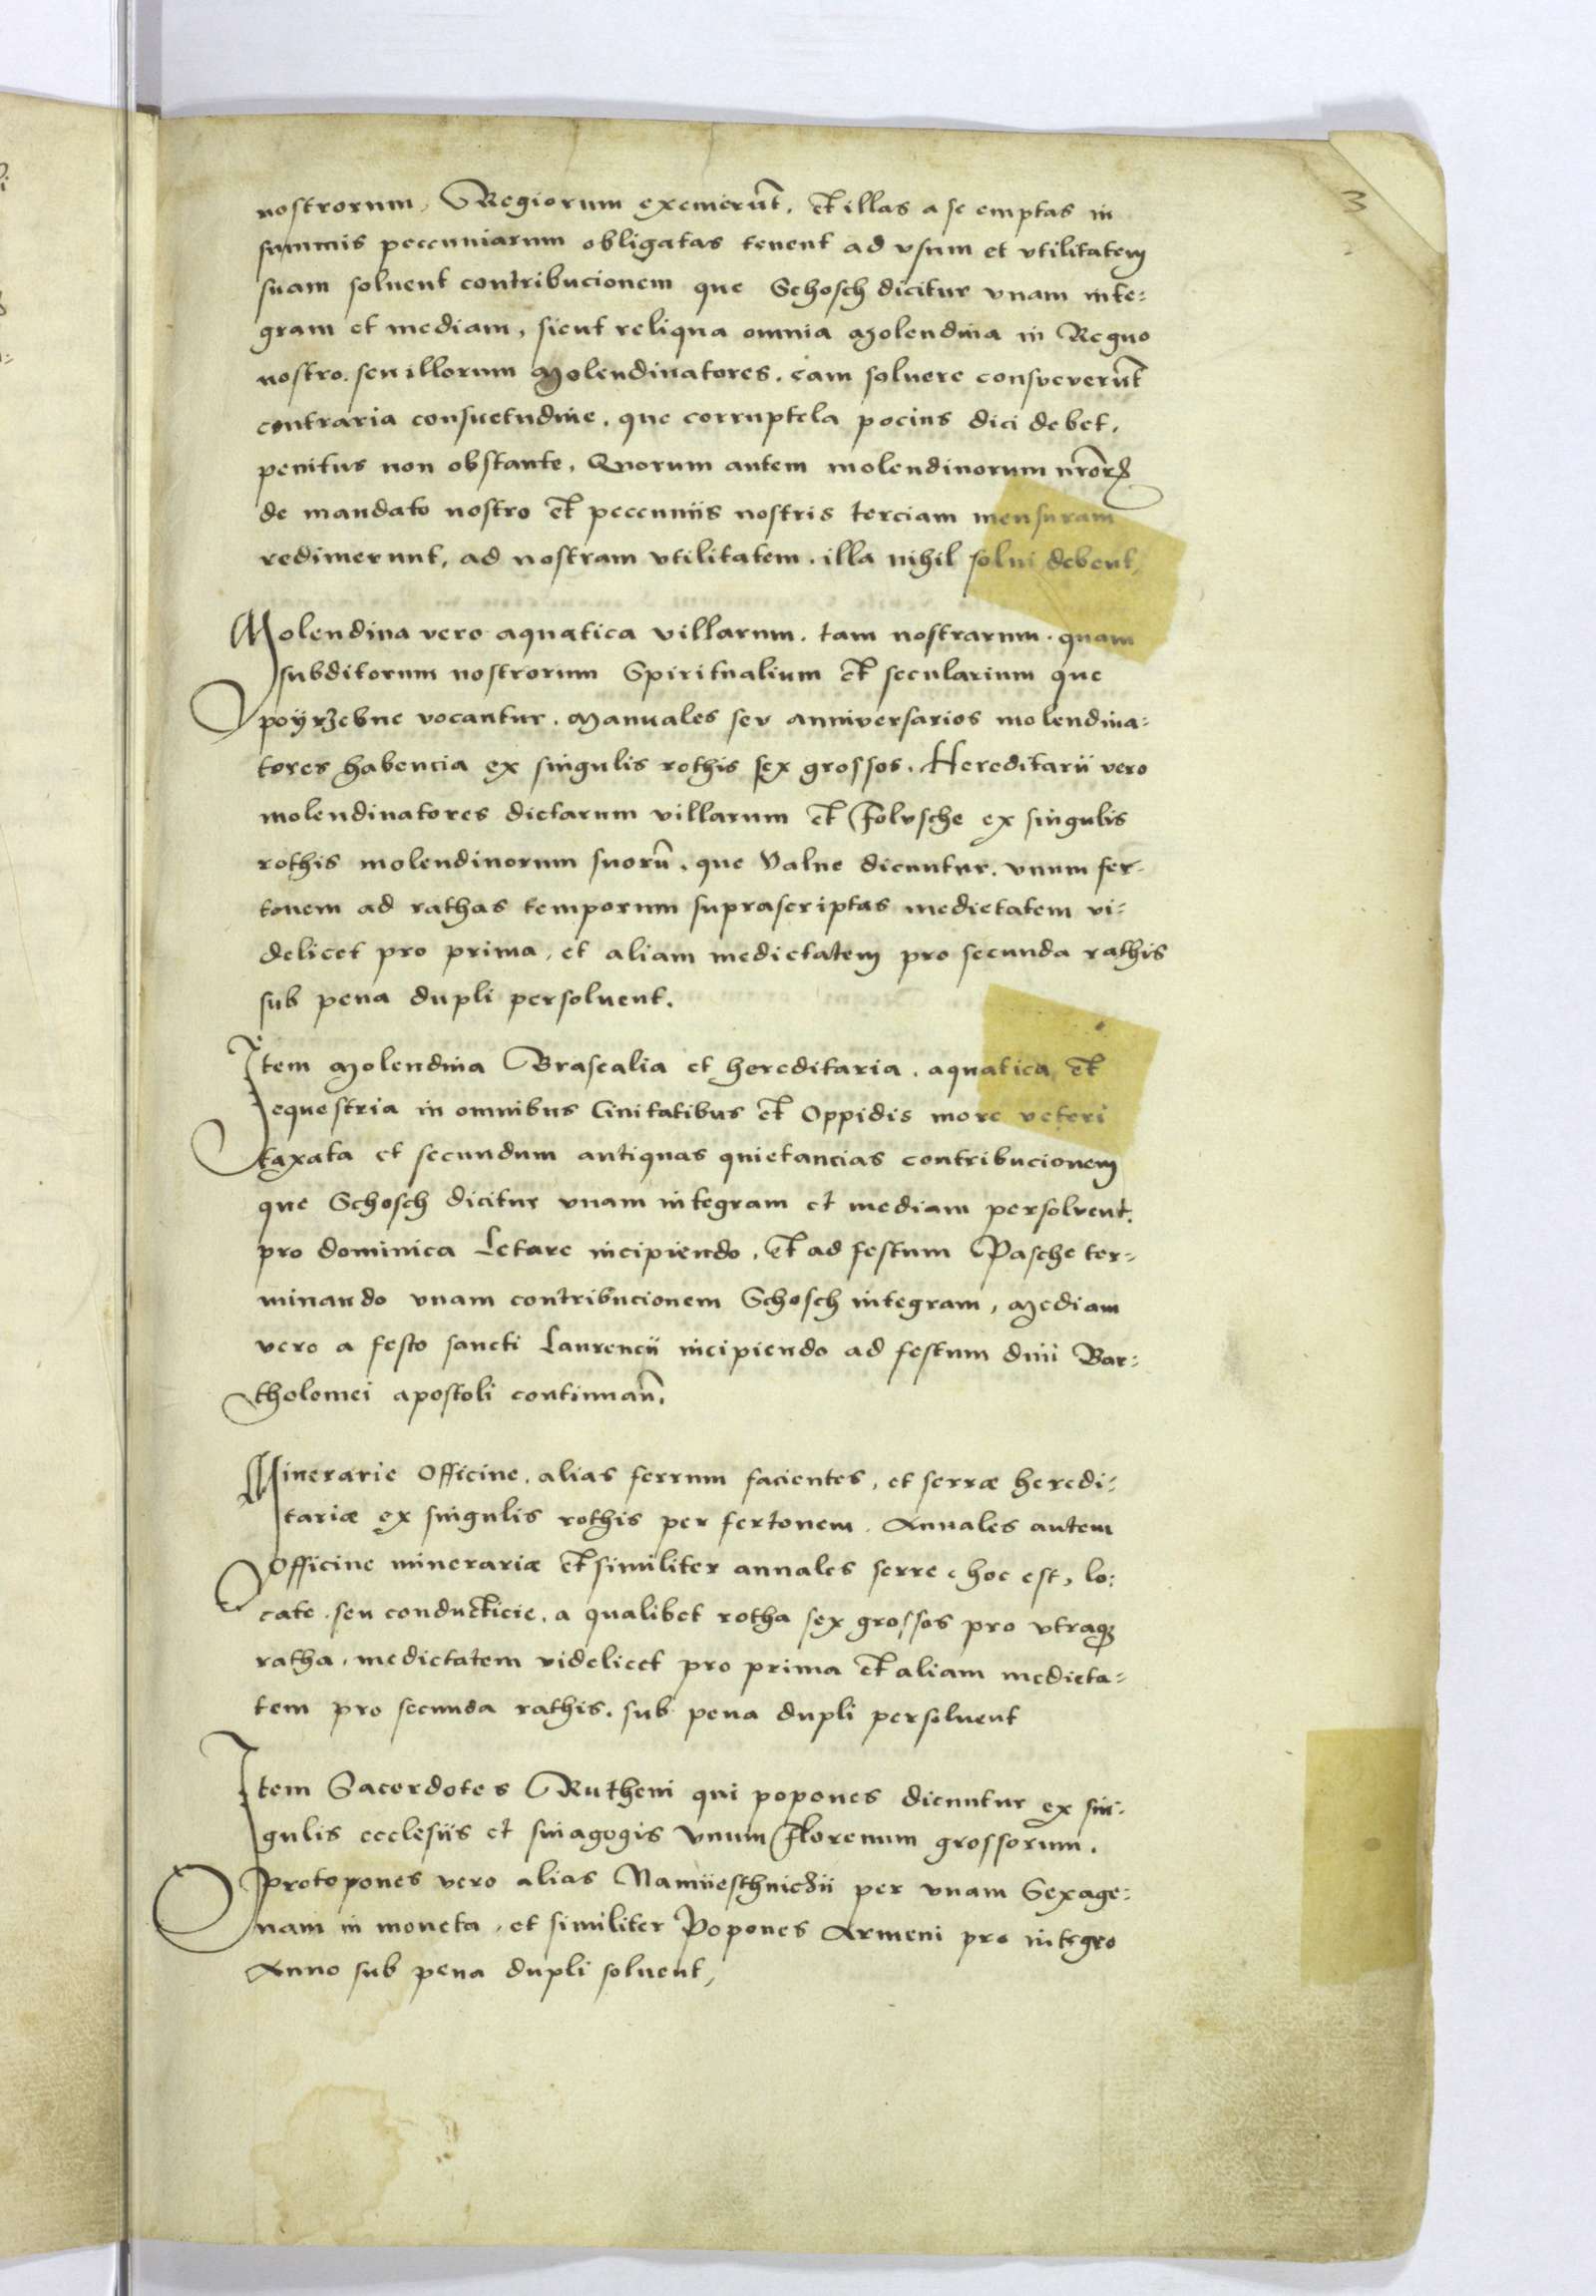 3
nostrorum, Regiorum exemerūt, et illas a se emptas in
summis peccuniarum obligatas tenent ad vsum et vtilitatem
suam soluent contribucionem que Schosch dicitur vnam inte:
gram et mediam, sicut reliqua omnia Molendina in Regno
nostro. seu illorum Molendinatores. eam soluere consveverūt
contraria consuetudine, que corruptela pocius dici debet,
penitus non obstante, Quorum autem molendinorum nrōrꝝ
de mandato nostro et peccuniis nostris terciam mensuram
redimerunt, ad nostram vtilitatem. illa nihil solui debent,
Molendina vero aquatica villarum. tam nostrarum. quam
subditorum nostrorum Spiritualium et secularium que
poÿrzebne vocantur. Manuales sev anniversarios molendina:
tores habencia ex singulis rothis sex grossos. Hereditarii vero
molendinatores dictarum villarum et Folvsche ex singulis
rothis molendinorum suorū. que Valne dicuntur. vnum fer-
tonem ad rathas temporum suprascriptas medietatem vi:
delicet pro prima, et aliam medietatem pro secunda rathis
sub pena dupli persoluent.
Item Molendina Brasealia et hereditaria. aquatica et
equestria in omnibus Ciuitatibus et Oppidis more veteri
taxata et secundum antiquas quietancias contribucionem
que Schosch dicitur vnam integram et mediam persolvent.
pro dominica Letare incipiendo, et ad festum Pasche ter-
minando vnam contribucionem Schosch integram, Mediam
vero a festo sancti Laurencii incipiendo ad festum diui Bar:
tholomei apostoli continuan̄.
Minerarie Officine, alias ferrum facientes, et serræ heredi:
tariæ ex singulis rothis per fertonem. Annales autem
Officine minerariæ et similiter annales serre, hoc est, lo:
cate seu conducticie, a qualibet rotha sex grossos pro vtraqꝫ
ratha, medietatem videlicet pro prima et aliam medieta:
tem pro secunda rathis. sub pena dupli persoluent
Item Sacerdotes Rutheni qui popones dicuntur ex sin-
gulis ecclesiis et sinagogis Vnum Florenum grossorum.
Protopones vero alias Namiiesthniczii per vnam Sexage:
nam in moneta, et similiter Popones Armeni pro integro
Anno sub pena dupli soluent,